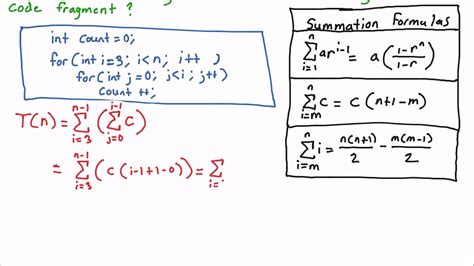 code fragment ?
int count = 0;
for(int i=3; i<n; i++ )
for(int j=0; j<i; j++)
count ++;
T(n) = \sum_{i=3}^{n-1} ( \sum_{j=0}^{i-1} C )
= \sum_{i=3}^{n-1} ( C (i-1+1-0)) = \sum_{i=
Summation Formulas
\sum_{i=1}^{n} ar^{i-1} = a ( \frac{1-r^n}{1-r} )
\sum_{i=m}^{n} C = C (n+1-m)
\sum_{i=m}^{n} i = \frac{n(n+1)}{2} - \frac{m(m-1)}{2}